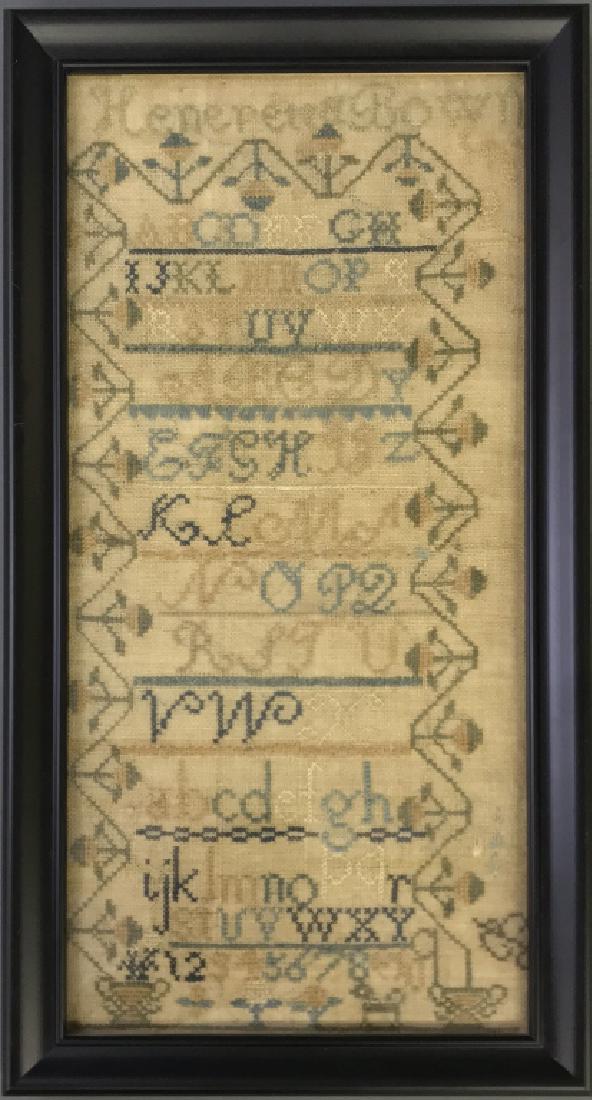 Henereŭa Bown
ABCDEFGH
IJKLMNOPQ
RSTUVWX
ABCDY
EFGHIJZ
KLMM
NOPQ
RSTU
VWX
abcdefgh
ijklmnopqr
STUVWXY
12345678